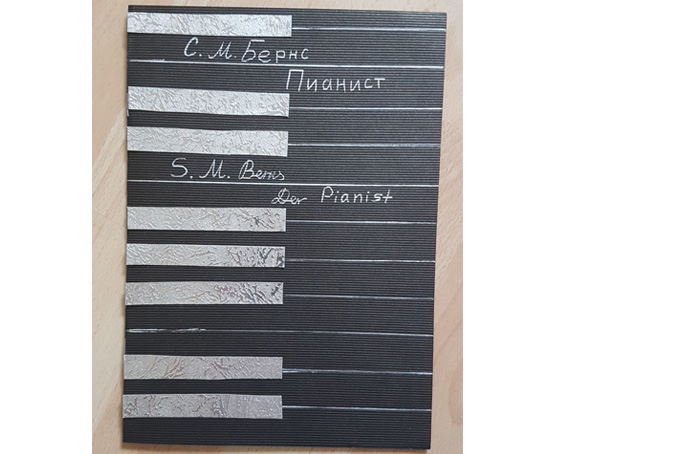 С. М. Бернс
Пианист
S. M. Berns
Der Pianist